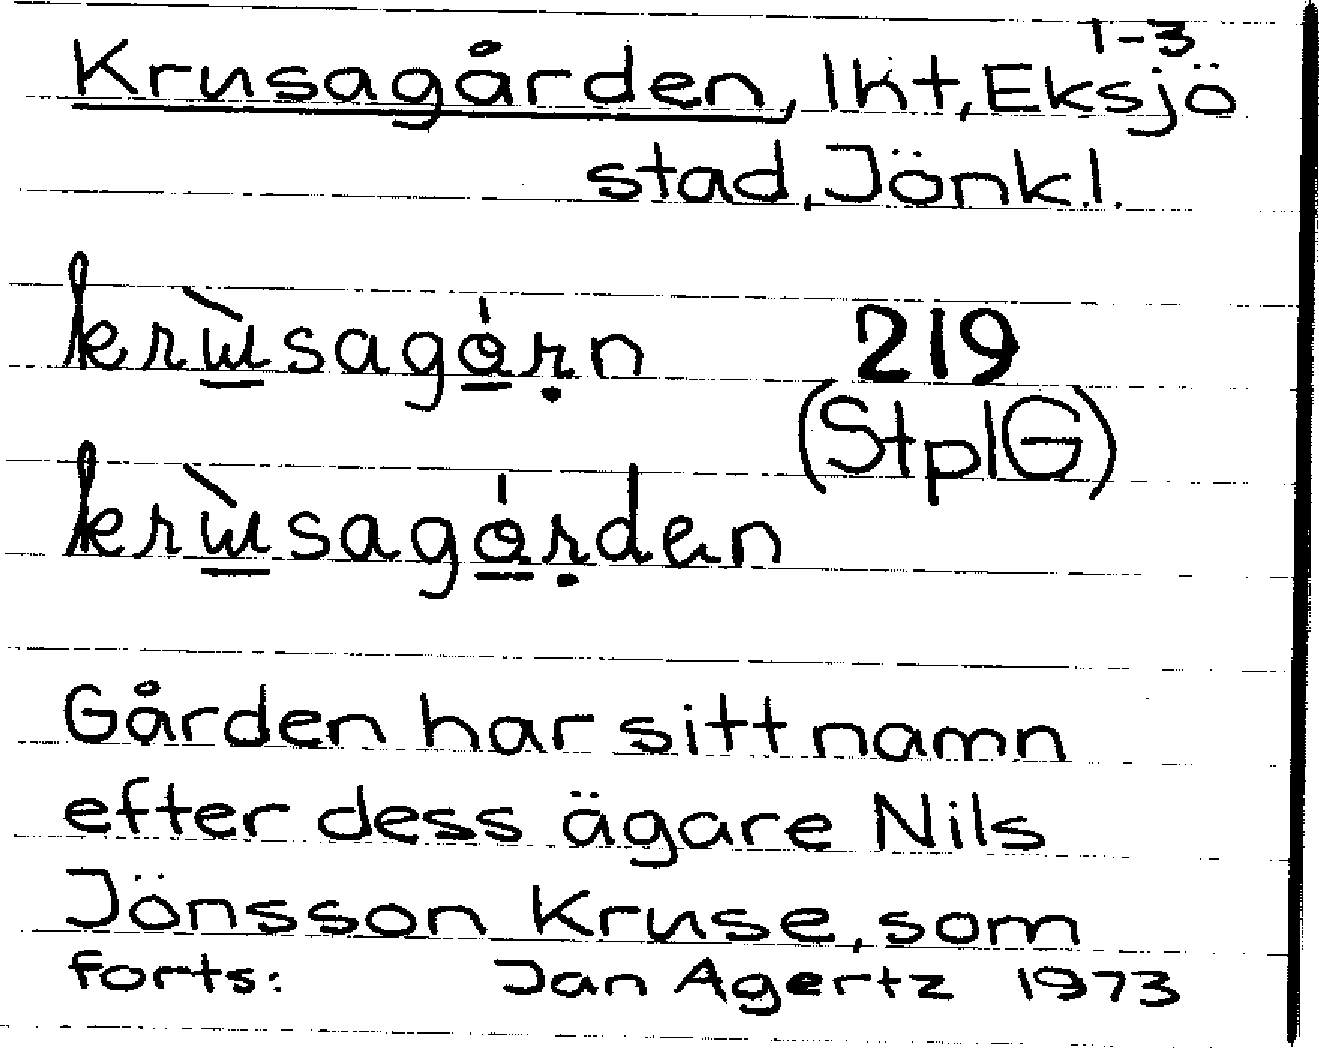 1-3
Krusagården, lkt, Eksjö
stad, Jönk.l.
krɯ̀sagɵ́ṛn 219
(StplG)
krɯ̀sagɵ́ṛdən
Gården har sitt namn
efter dess ägare Nils
Jönsson Kruse, som
forts: Jan Agertz 1973